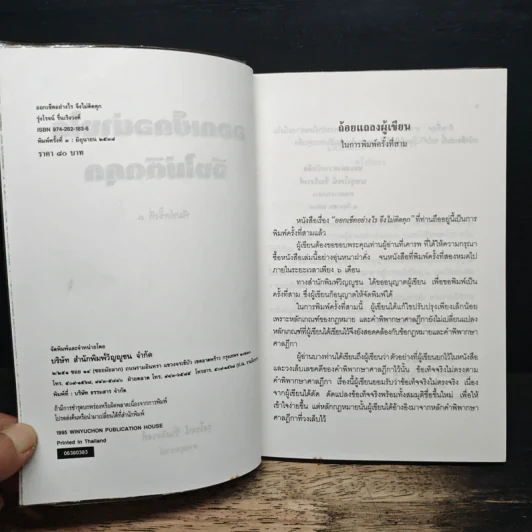 ออกเช็คอย่างไร จึงไม่ติดคุก
รุ่งโรจน์ รื่นเริงวงศ์
ISBN 974-282-183-6
พิมพ์ครั้งที่ ๓ : มิถุนายน ๒๕๓๘
ราคา ๘๐ บาท
จัดพิมพ์และจำหน่ายโดย
บริษัท สำนักพิมพ์วิญญูชน จำกัด
พิมพ์ที่ : บริษัท ธรรมสาร จำกัด
ถ้ามีการชำรุดบกพร่องหรือผิดพลาดเนื่องจากการพิมพ์
โปรดส่งคืนหรือนำมาเปลี่ยนได้ที่สำนักพิมพ์
1995 WINYUCHON PUBLICATION HOUSE
Printed in Thailand
06360383
ถ้อยแถลงผู้เขียน
ในการพิมพ์ครั้งที่สาม
หนังสือเรื่อง "ออกเช็คอย่างไร จึงไม่ติดคุก" ที่ท่านถืออยู่นี้เป็นการ
พิมพ์ครั้งที่สามแล้ว
ผู้เขียนต้องขอขอบพระคุณท่านผู้อ่านที่เคารพ ที่ได้ให้ความกรุณา
ซื้อหนังสือเล่มนี้อย่างอุ่นหนาฝาคั่ง จนหนังสือที่พิมพ์ครั้งที่สองหมดไป
ภายในระยะเวลาเพียง ๖ เดือน
ทางสำนักพิมพ์วิญญูชน ได้ขออนุญาตผู้เขียน เพื่อขอพิมพ์เป็น
ครั้งที่สาม ซึ่งผู้เขียนก็อนุญาตให้จัดพิมพ์ได้
ในการพิมพ์ครั้งที่สามนี้ ผู้เขียนได้แก้ไขปรับปรุงเพียงเล็กน้อย
เพราะหลักเกณฑ์ของกฎหมาย และคำพิพากษาศาลฎีกายังไม่เปลี่ยนแปลง
หลักเกณฑ์ที่ผู้เขียนได้เขียนไว้จึงยังสอดคล้องกับข้อกฎหมายและคำพิพากษา
ศาลฎีกา
ผู้อ่านบางท่านได้เขียนถึงผู้เขียนว่า ตัวอย่างที่ผู้เขียนยกไว้ในหนังสือ
และวงเล็บเลขคดีของคำพิพากษาศาลฎีกาไว้นั้น ข้อเท็จจริงไม่ตรงตาม
คำพิพากษาศาลฎีกา เรื่องนี้ผู้เขียนยอมรับว่าข้อเท็จจริงไม่ตรงจริง เนื่อง
จากผู้เขียนได้ตัด ดัดแปลงข้อเท็จจริงพร้อมทั้งสมมุติชื่อขึ้นใหม่ เพื่อให้
เข้าใจง่ายขึ้น แต่หลักกฎหมายนั้นผู้เขียนได้อ้างอิงมาจากหลักคำพิพากษา
ศาลฎีกาที่วงเล็บไว้